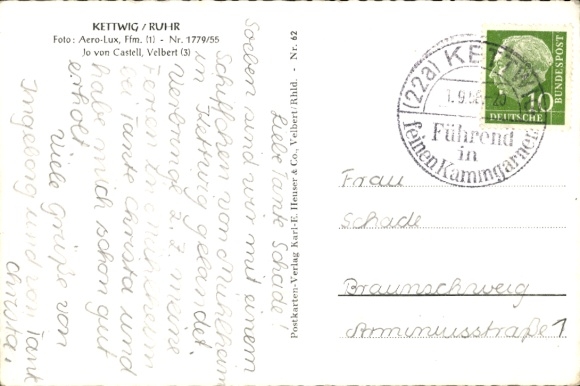 KETTWIG / RUHR
Foto: Aero-Lux, Ffm. (1) - Nr. 1779/55
Jo von Castell, Velbert (3)
Liebe Tante Schade!
Soeben sind wir mit einem
Schiffchen von Mühlheim
in Kettwig gelandet
Verbringe z. Z. meine
Ferien in Mülheim
bei Tante Christa und
habe mich schon gut
erholt
Viele Grüße von
Ingeborg und von Tante
Christa.
Postkarten-Verlag Karl-E. Heuser & Co., Velbert/Rhld. - Nr. 62
(22a) KETTWIG
1.9.58
Führend
in
feinen Kammgarnen
10
DEUTSCHE
BUNDESPOST
Frau
Schade
Braunschweig
Arminiusstraße 1